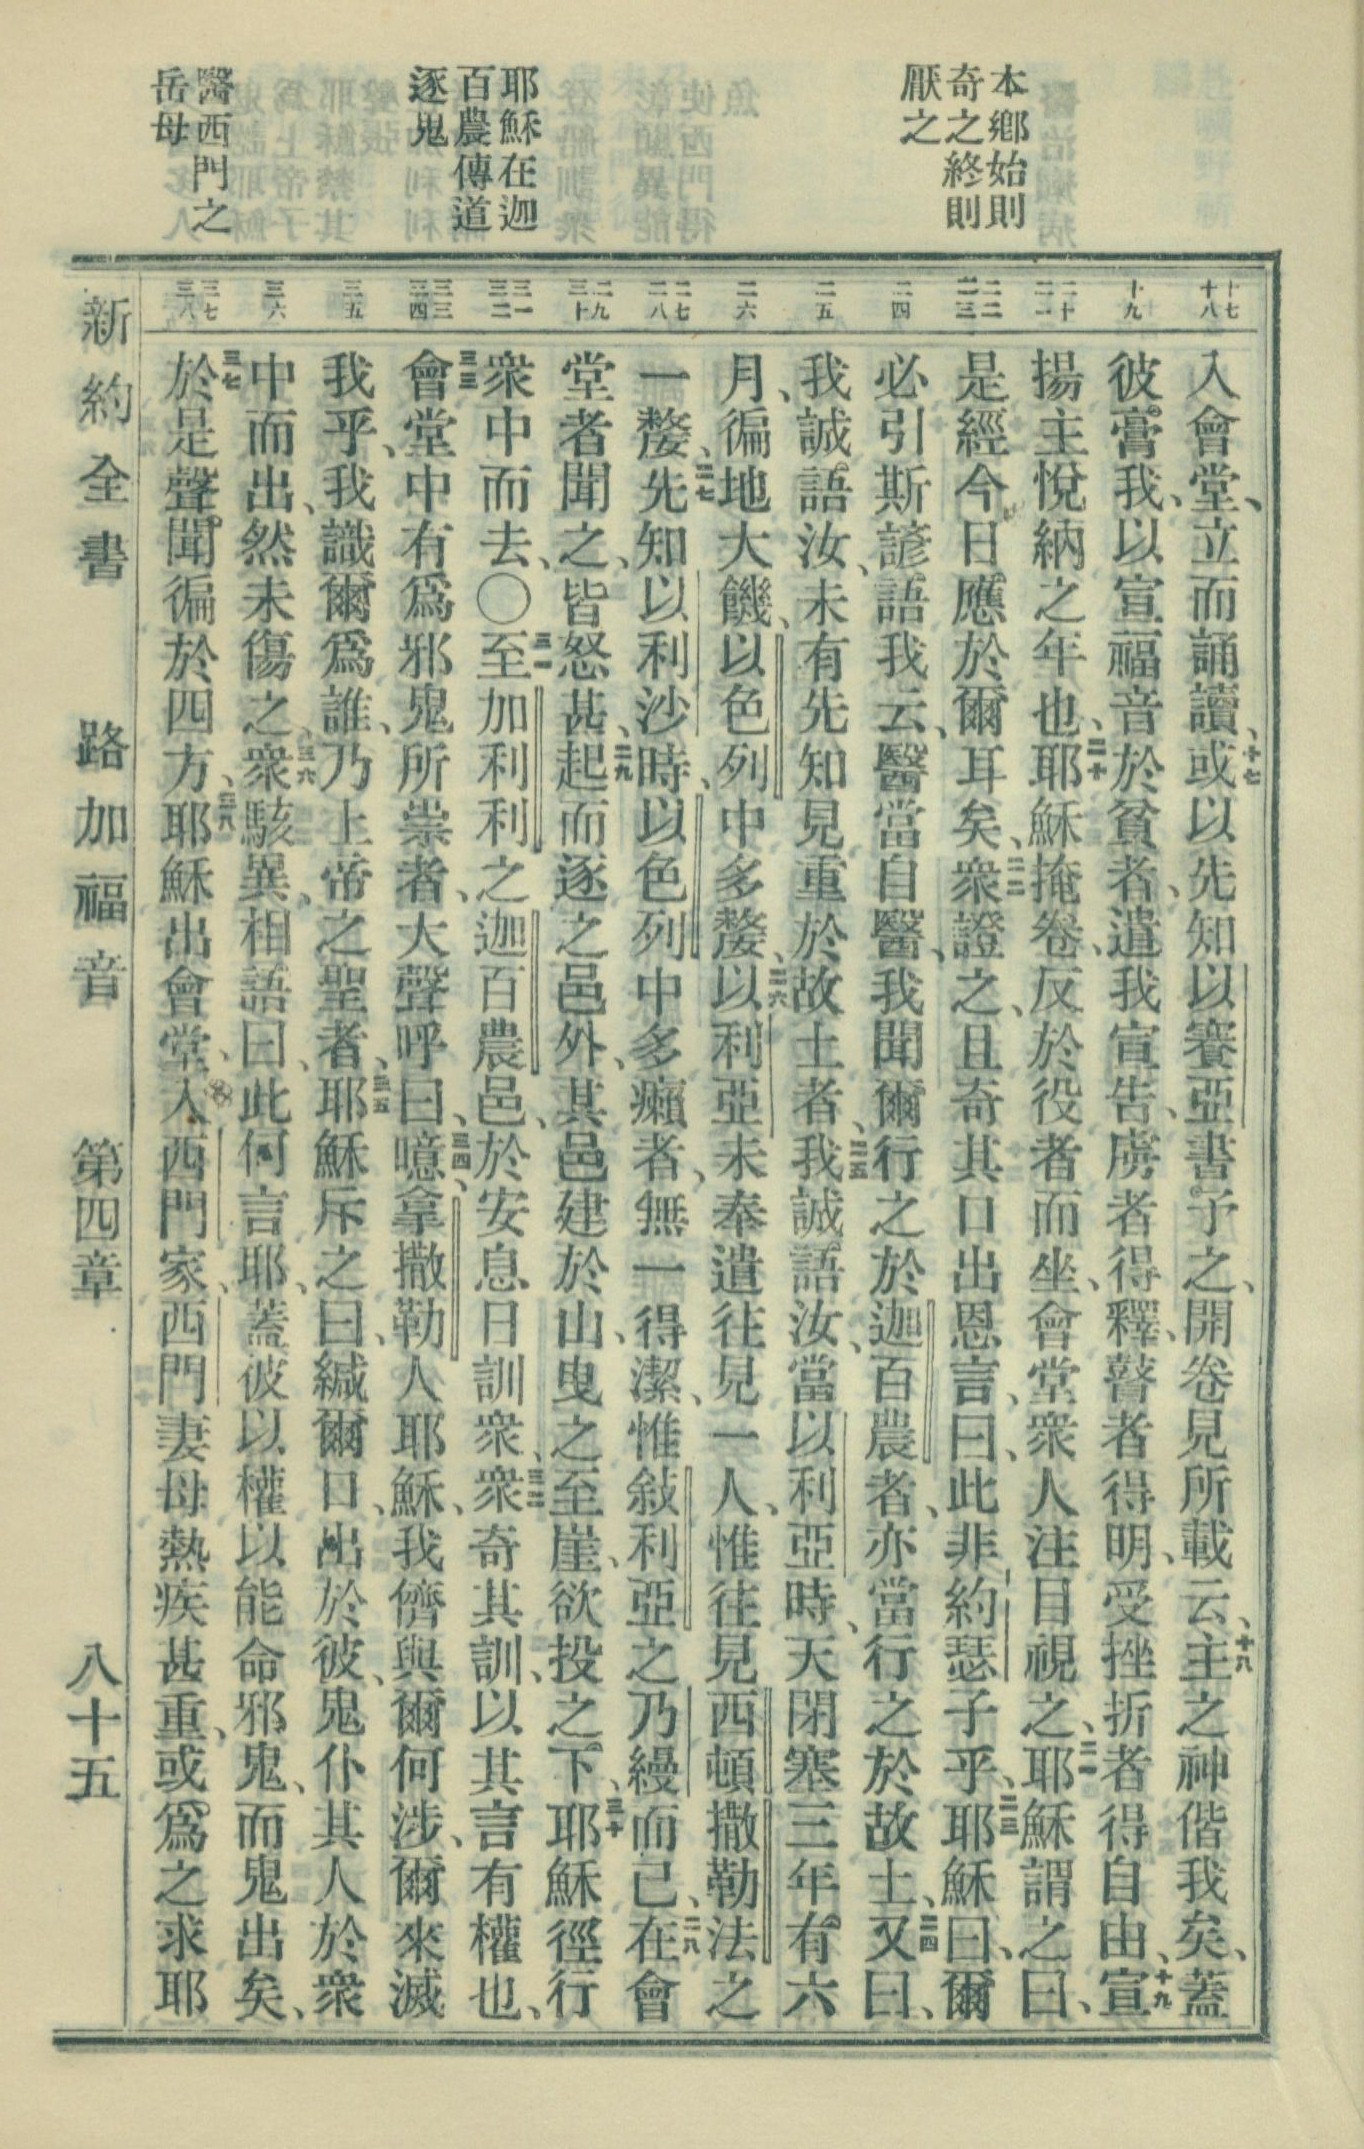 本鄉始則
奇之終則
厭之
耶穌在迦
百農傳道
逐鬼
醫西門之
岳母
十七 十八
十九
二十 二一
二二 二三
二四
二五
二六
二七 二八
二九 三十
三一 三二
三三 三四
三五
三六
三七 三八
入會堂、立而誦讀、十七或以先知以賽亞書予之、開卷見所載云、十八主之神偕我矣、蓋
彼膏我、以宣福音於貧者、遣我宣告、虜者得釋、瞽者得明、受挫折者得自由、十九宣
揚主悅納之年也、二十耶穌掩卷、反於役者而坐、會堂衆人注目視之、二一耶穌謂之曰、
是經今日應於爾耳矣、二二衆證之、且奇其口出恩言、曰、此非約瑟子乎、二三耶穌曰、爾
必引斯諺語我云、醫當自醫、我聞爾行之於迦百農者、亦當行之於故土、二四又曰、
我誠語汝、未有先知見重於故土者、二五我誠語汝、當以利亞時、天閉塞三年有六
月、徧地大饑、以色列中多嫠、二六以利亞未奉遣往見一人、惟往見西頓撒勒法之
一嫠、二七先知以利沙時、以色列中多癩者、無一得潔、惟敍利亞之乃縵而已、二八在會
堂者聞之、皆怒甚、二九起而逐之邑外、其邑建於山、曳之至崖、欲投之下、三十耶穌徑行
衆中而去、〇三一至加利利之迦百農邑、於安息日訓衆、三二衆奇其訓、以其言有權也、
三三會堂中有爲邪鬼所祟者、大聲呼曰、三四噫、拿撒勒人耶穌、我儕與爾何涉、爾來滅
我乎、我識爾爲誰、乃上帝之聖者、三五耶穌斥之曰、緘爾口、出於彼、鬼仆其人於衆
中而出、然未傷之、三六衆駭異、相語曰、此何言耶、蓋彼以權以能命邪鬼、而鬼出矣、
三七於是聲聞徧於四方、三八耶穌出會堂、入西門家、西門妻母熱疾甚重、或爲之求耶
新約全書 路加福音 第四章 八十五